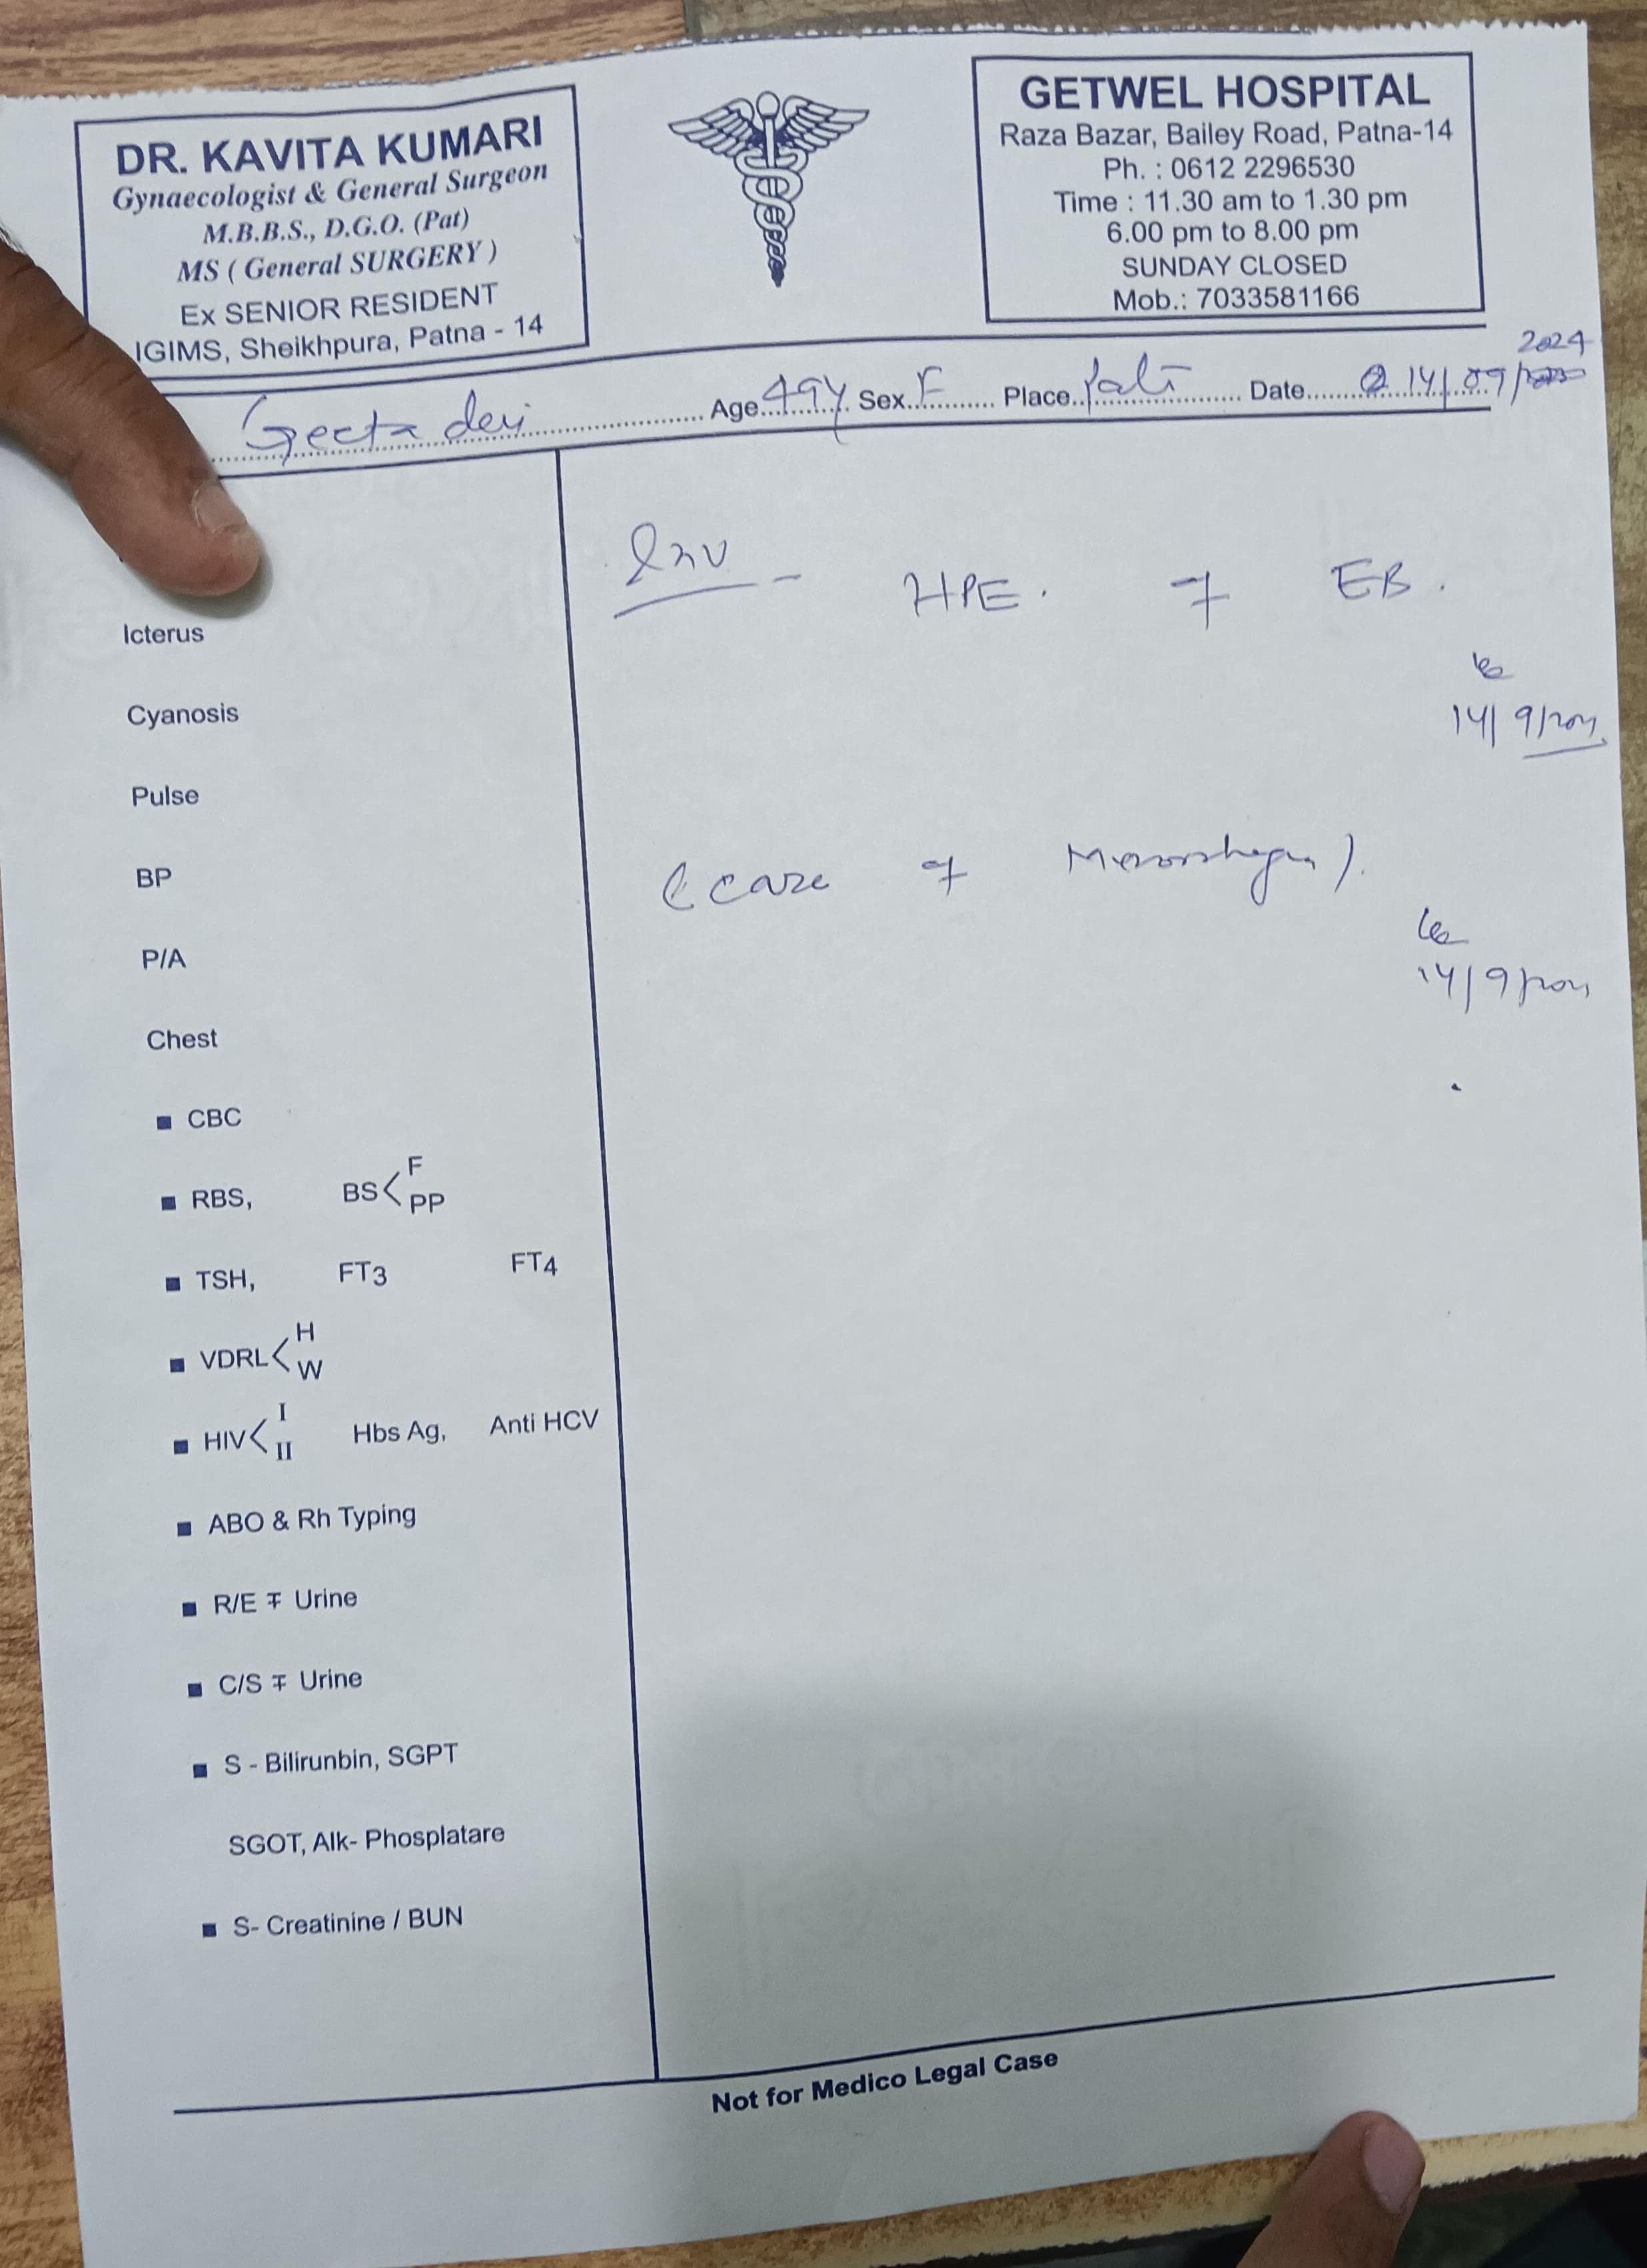 DR. KAVITA KUMARI
Gynaecologist & General Surgeon
M.B.B.S., D.G.O. (Pat)
MS ( General SURGERY )
Ex SENIOR RESIDENT
IGIMS, Sheikhpura, Patna - 14
GETWEL HOSPITAL
Raza Bazar, Bailey Road, Patna-14
Ph. : 0612 2296530
Time : 11.30 am to 1.30 pm
6.00 pm to 8.00 pm
SUNDAY CLOSED
Mob.: 7033581166
2024
Geeta devi Age 49Y Sex F Place Date 14/09/
Inv - HPE. of EB.
14/9/
(case of )
14/9/
Icterus
Cyanosis
Pulse
BP
P/A
Chest
CBC
RBS, BS< F PP
TSH, FT3 FT4
VDRL< H W
HIV< I II Hbs Ag, Anti HCV
ABO & Rh Typing
R/E ∓ Urine
C/S ∓ Urine
S - Bilirunbin, SGPT
SGOT, Alk- Phosplatare
S- Creatinine / BUN
Not for Medico Legal Case